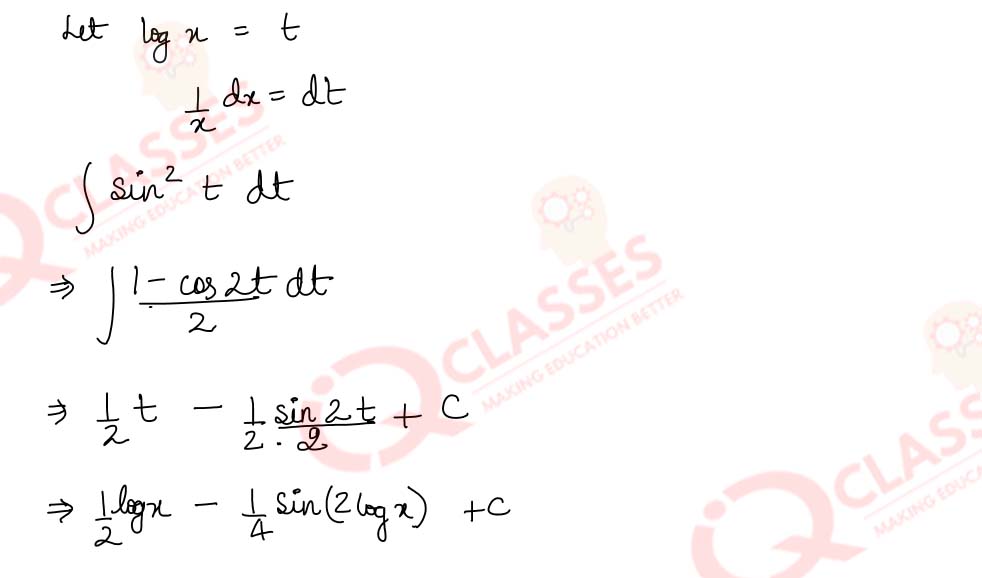 Let log x = t
1/x dx = dt
∫ sin² t dt
⇒ ∫ (1 - cos 2t)/2 dt
⇒ 1/2 t - 1/2 · (sin 2t)/2 + C
⇒ 1/2 log x - 1/4 sin(2 log x) + C
CLASSES
MAKING EDUCATION BETTER
iQ CLASSES
MAKING EDUCATION BETTER
iQ CLASS
MAKING EDUCA